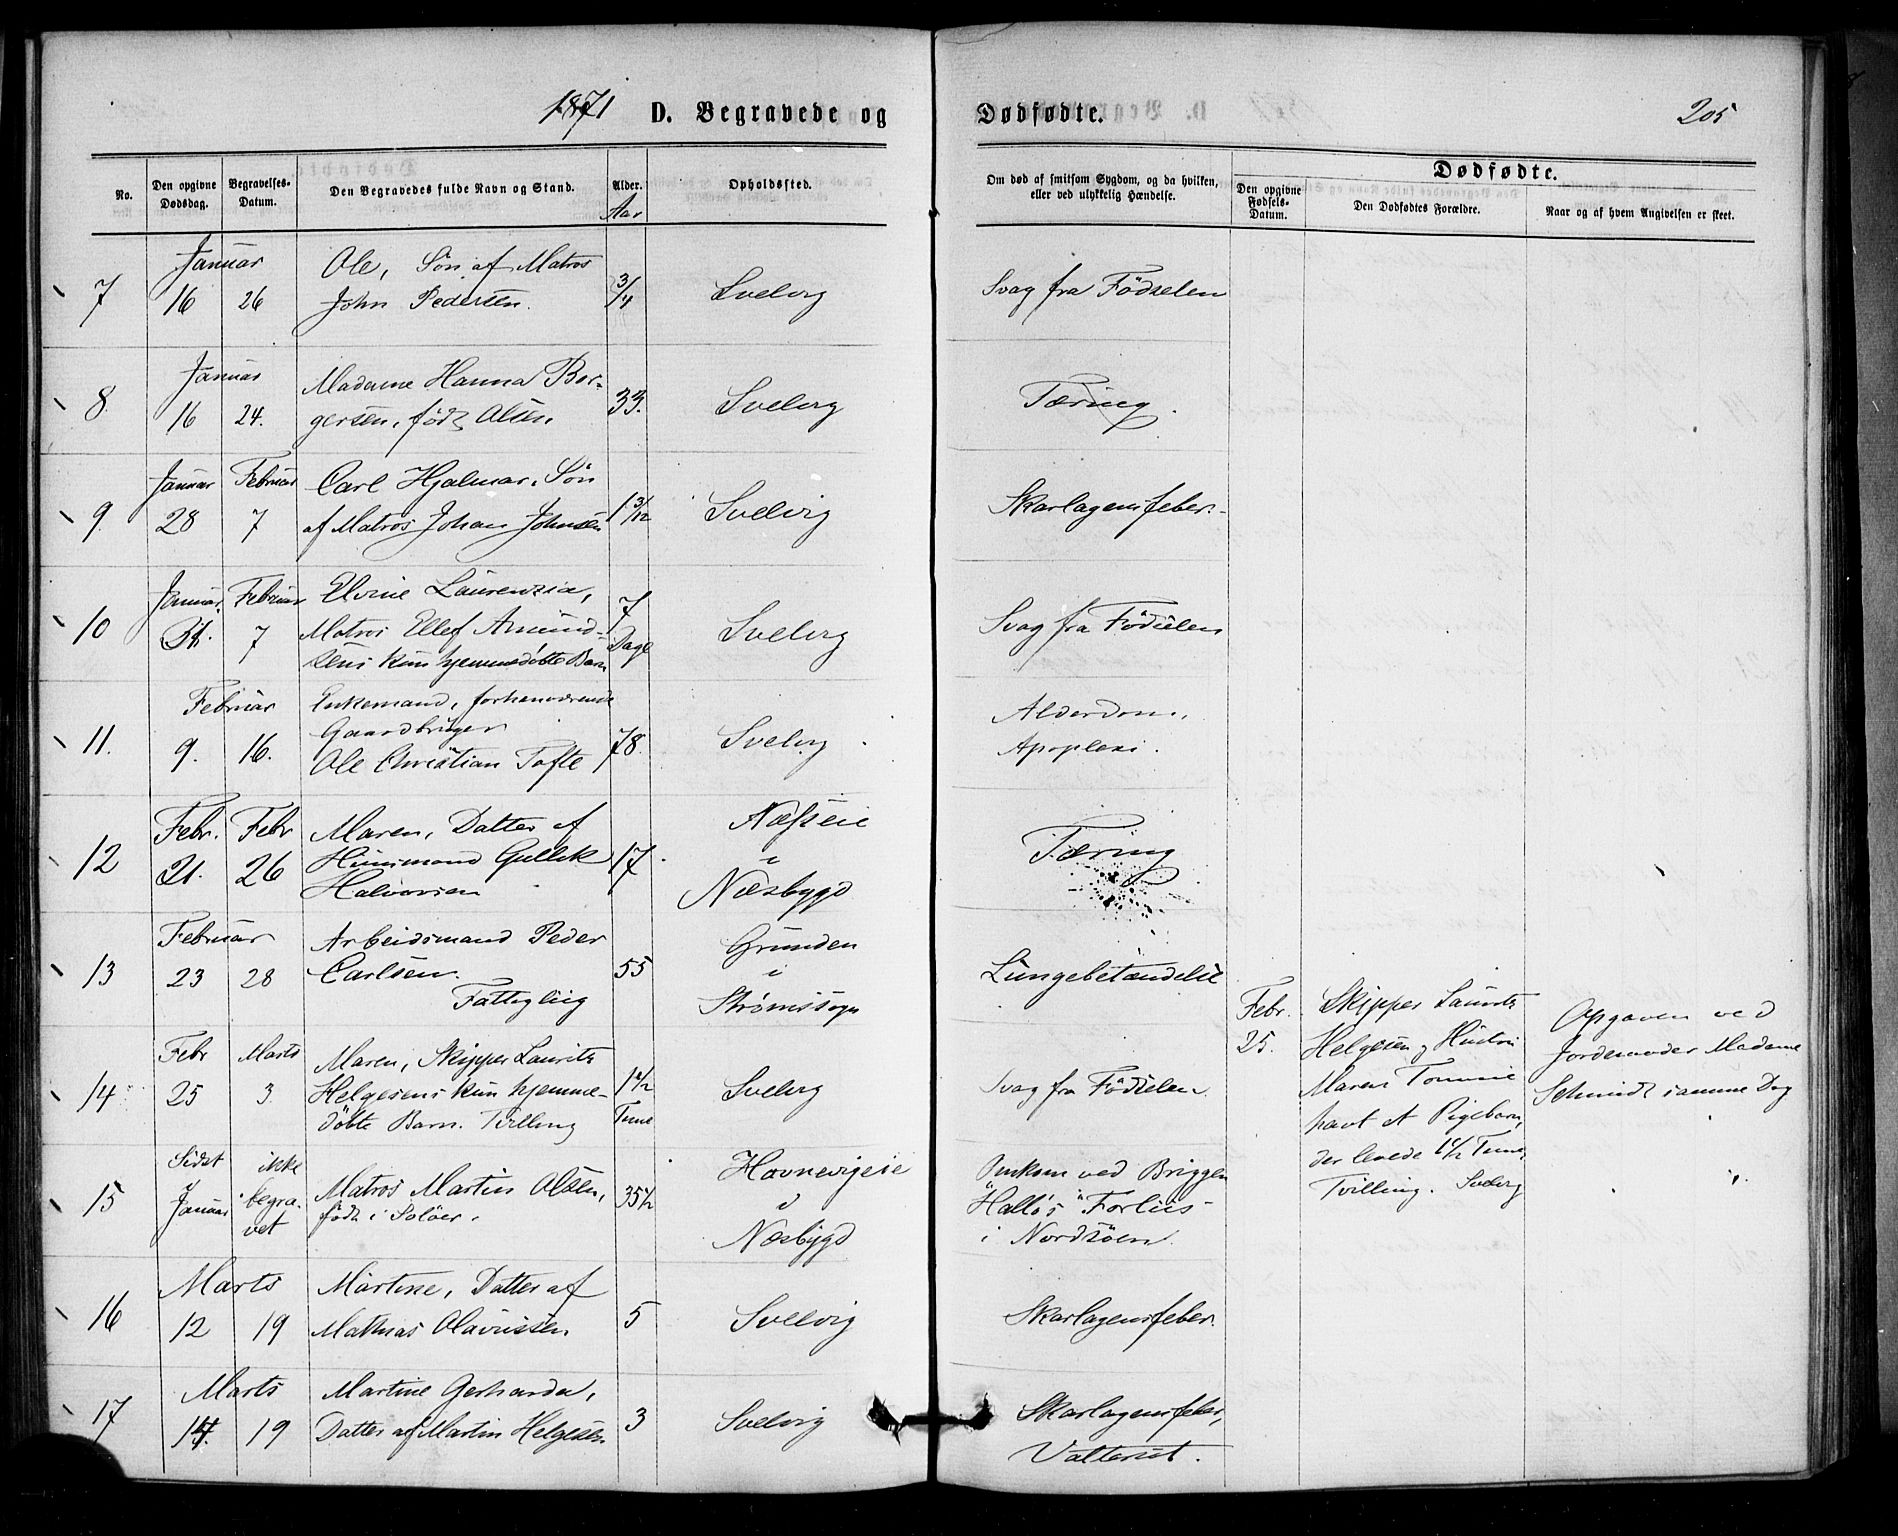 1871 D. Begravede og Dødfødte. 205
No.
Den opgivne Dødsdag.
Begravelses-Datum.
Den Begravedes fulde Navn og Stand.
Alder.
Aar
Opholdssted.
Om død af smitsom Sygdom, og da hvilken, eller ved ulykkelig Hændelse.
Dødfødte.
Den opgivne Fødsels-Datum.
Den Dødfødtes Forældre.
Naar og af hvem Angivelsen er skeet.
7
Januar
16 26
Ole, Søn af Matros
John Pedersen.
3/4
Svelvig
Svag fra Födselen
8
Januar
16 24.
Madame Hanna Bor-
gersen, födt Olsen
33.
Svelvig
Tæring.
9.
Januar Februar
28 7
Carl Hjalmar, Søn
af Matros Johan Johnsen
1 3/12
Svelvig
Skarlagensfeber.
10
Januar. Februar
31. 7
Elvine Laurenzia,
Matros Ellef Amund-
sens kun hjemmedöbte Barn
7
Dage
Svelvig
Svag fra Födselen
11.
Februar
9. 16.
Enkemand, forhenværende
Gaardbruger
Ole Christian Tofte
78.
Svelvig
Alderdom,
Apoplexi.
12
Febr. Febr
21. 26
Maren, Datter af
Huusmand Gullik
Halvorsen
17
Næsseie
i
Næsbygd
Tæring
13
Februar
23 28
Arbeidsmand Peder
Carlsen.
Fattiglig
55
Grunden
i
Strømssogn
Lungebetændelse
14
Febr Marts
25 3
Maren, Skipper Laurits
Helgesens kun hjemme-
döbte Barn. Tvilling
1 1/2
Time
Svelvig
Svag fra Födselen.
Febr.
25.
Skipper Laurits
Helgesen og Hustru
Maren Tommine
havt et Pigebarn,
der levede 1 1/2 Time,
Tvilling. Svelvig
Opgaven ved
Jordemoder Madame
Schmidt samme Dag
15
Sidst
Januar
ikke
begra-
vet
Matros Martin Olsen,
födt i Solöer.
35 1/2
Hovnevigeie
i
Næsbygd
Omkom ved Briggen
"Hallö's" Forliis
i Nordsöen.
16
Marts
12 19
Martine, Datter af
Mathias Olavessen
5
Svelvig
Skarlagensfeber.
17
Marts
14. 19
Martine Gerharda,
Datter af Martin Helgesen
3
Svelvig
Skarlagensfeber,